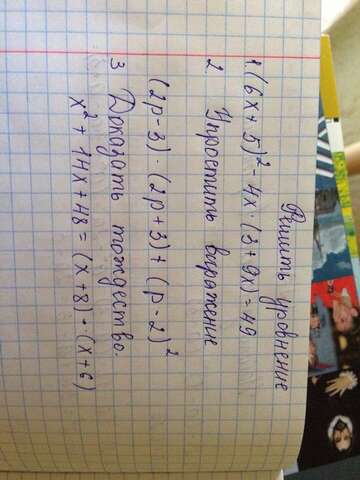 Решить уровнение
1. (6x+5)² - 4x · (3+9x) = 49
2. Упростить выражение
(2p-3) · (2p+3) + (p-2)²
3 Доказать тождество.
x² + 14x + 48 = (x+8) · (x+6)